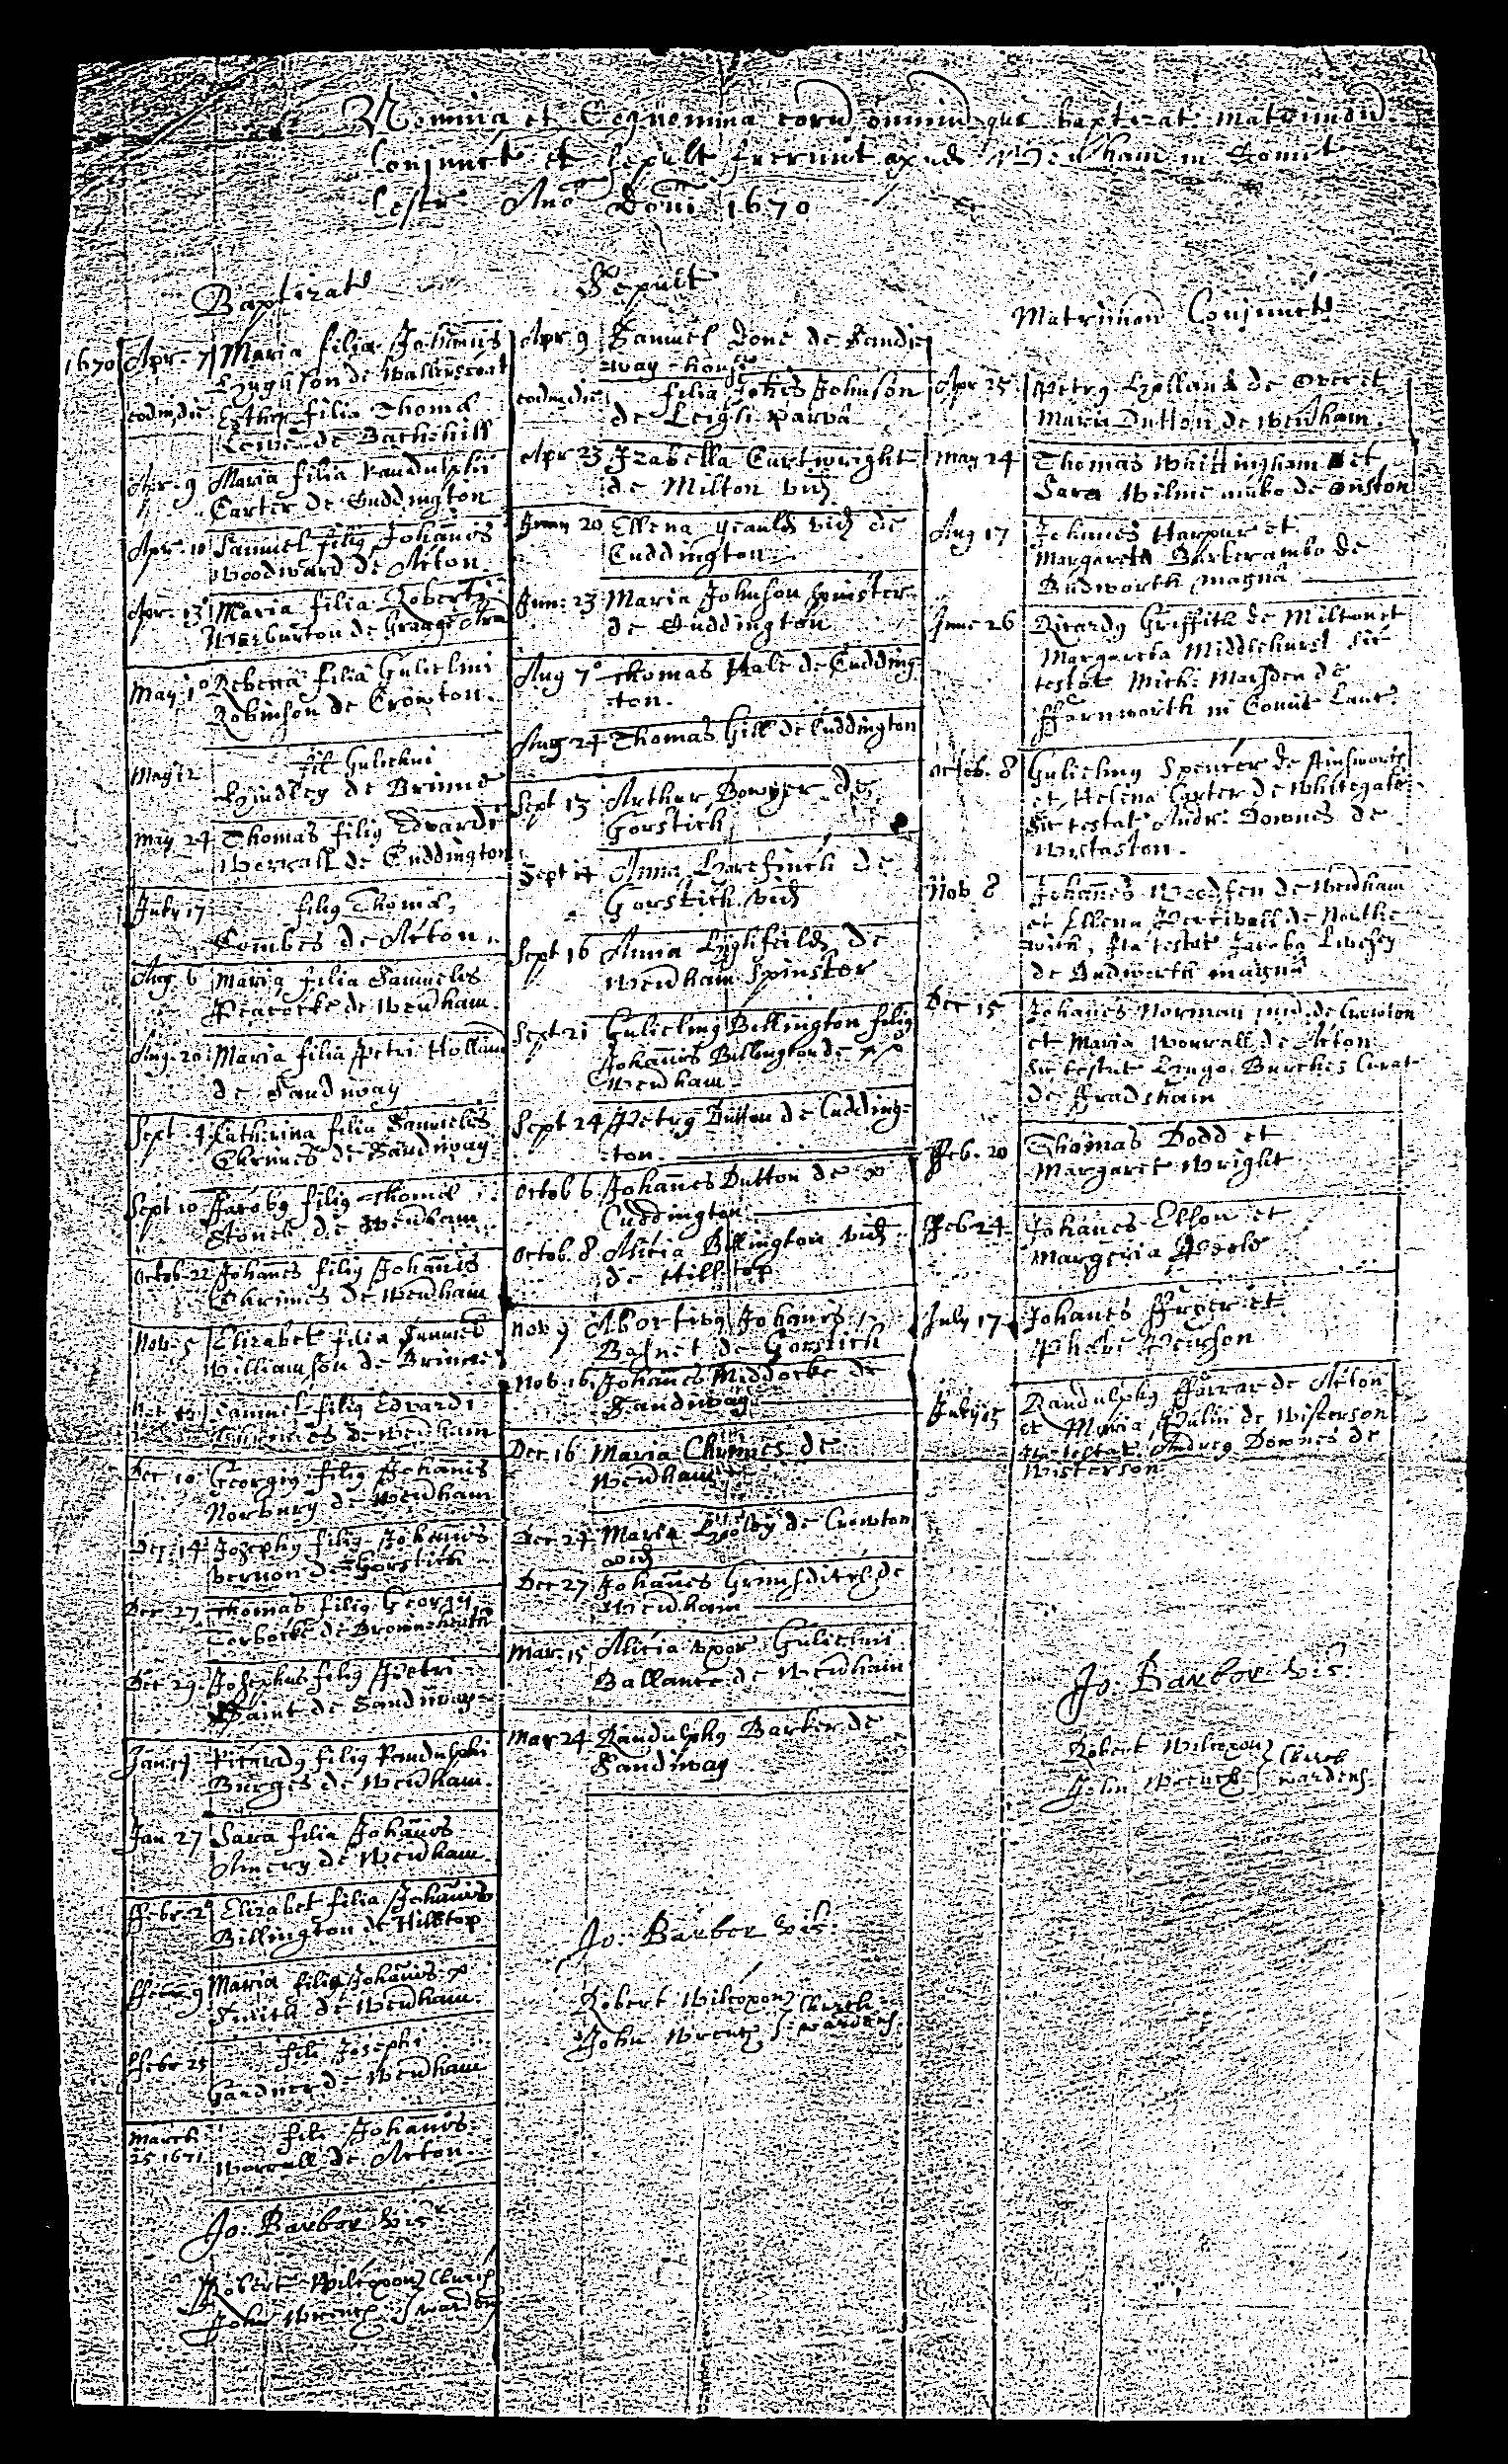 Nomina et Cognomina eorū omniū que baptizat matrimoñ
Conjunct et Sepult fuerunt apud Weūham in Comit
Cestr Año Doni 1670
Baptizat
1670 Apr. 7 Maria filia Johannis
Hughson de Wallerscoat
eodm die Esther filia Thomæ
Lewe de Bachehill
Apr. 9 Maria filia Randulphi
Carter de Cuddington
Apr. 10 Samuel filiq Johanīs
Woodward de Acton
Apr. 13 Maria filia Roberti
Warburton de
May 1º Rebecca filia Gulielmi
Robinson de Crowton.
May 12 fil Gulielmi
Hindley de Brinne
May 24 Thomas filiq Edvardi
Worrall de Cuddington
July 17 filiq Thomæ
Combes de Acton.
Aug. 6 Maria filia Samuelis
Peacocke de Weūham
Aug. 20 Maria filia Petri Holland
de Sandiway
Sept. 4 Catherina filia Samuelis
Chrimes de Sandiway
Sept 10 Jacobq filiq Thomæ
de Weūham
Octob. 22 Johañes filiq Johanīs
Chrimes de Weūham
Nov. 5 Elizabet filia Samuel
Williamson de Brinne
Samuel filiq Edvardi
Chrimes de Weūham
Dec 10 Georgiq filiq Johanīs
Norbury de Weūham
Dec. 14 Josephq filiq Johanīs
Vernon de Gorstich
Dec. 27 Thomas filiq Georgii
Torbocke de
Dec 29. Josephus filiq Petri
de Sandiway
Jan: Ricardq filiq Randulphi
Burges de Weūham.
Jan 27 Sara filia Johanīs
Amery de Weūham
ffebr. 2º Elizabet filia Johanīs
Billington de Hilltop
ffebr 9 Maria filia Johanīs
Smith de Weūham
ffebr 25 fili Josephi
Gardner de Weūham
March
25 1671 fili Johanīs
Worrall de Acton.
Jo: Barber vic
Robert Wilcoxon Church
John Wrench wardens
Sepult
Apr 9 Samuel Done de Sandi
way-house
eodm die filia Johīs Johnson
de Leigh parvâ
Apr 23 Izabella Curtwright
de Milton vid
June 20 Ellena Yeauld vid de
Cuddington
Jun: 23 Maria Johnson spinster
de Cuddington
Aug 7º Thomas Hale de Cudding
ton.
Aug 24 Thomas Gill de Cuddington
Sept 13 Arthur Bowyer de
Gorstich
Sept Anna Harefinch de
Gorstich vid
Sept 16 Anna Highfeild de
Weūham Spinster
Sept 21 Gulielmq Billington filiq
Johanīs Billington de
Weūham
Sept 24 Petrq Dutton de Cudding-
ton.
Octob 6 Johañes Dutton de
Cuddington
Octob. 8 Alicia Billington vid
de Hill top
Nov 9 Abortivq Johanīs
Basnet de Gorstich
Nov. 16 Johañes Middocke de
Sandiway
Dec. 16 Maria Chrimes de
Weūham
Dec 24 Maria de Crowton
vid
Dec 27 Johañes Grimsditch de
Weūham
Mar. 15 Alicia uxor Gulielmi
Ballance de Weūham
Mar 24 Randulphq Barker de
Sandiway
Jo: Barber vic
Robert Wilcoxon Church-
John Wrench wardens
Matrimoñ Conjunct
Apr 25 Petrq Holland de Over et
Maria Dutton de Weūham.
May 24 Thomas Whittingham et
Sara Wilme ambo de Onston
Aug 17 Johañes Harpur et
Margareta Barker ambo de
Budworth magnâ
June 26 Ricardq Griffith de Milton et
Margareta Middlehurst sic
testat Mich: Marsden de
ffarnworth in Comit Lanc.
Octob. 8 Gulielmq Spencer de Ainsworth
et Helena Carter de Whitegate
sic testat Andr: Downes de
Wistaston.
Nov 8 Johañes Woodfen de Weūham
et Ellena Percivall de Northe
wich, ita testat Jacobq Livesey
de Budworth magnâ
Dec 15 Johañes Norman de Crowton
et Maria Worrall de Acton
sic testat Hugo Burches Curat
de ffradsham
ffeb. 20 Thomas Dodd et
Margaret Wright
ffeb 24 Johañes Elson et
Margeria
July 17 Johañes et
Phebe Pearson
July 25 Randulphq ffarrar de Acton
et Maria de Wisterson
ita testat Andreq Downes de
Wisterson
Jo: Barber vic.
Robert Wilcoxon Church
John Wrench wardens